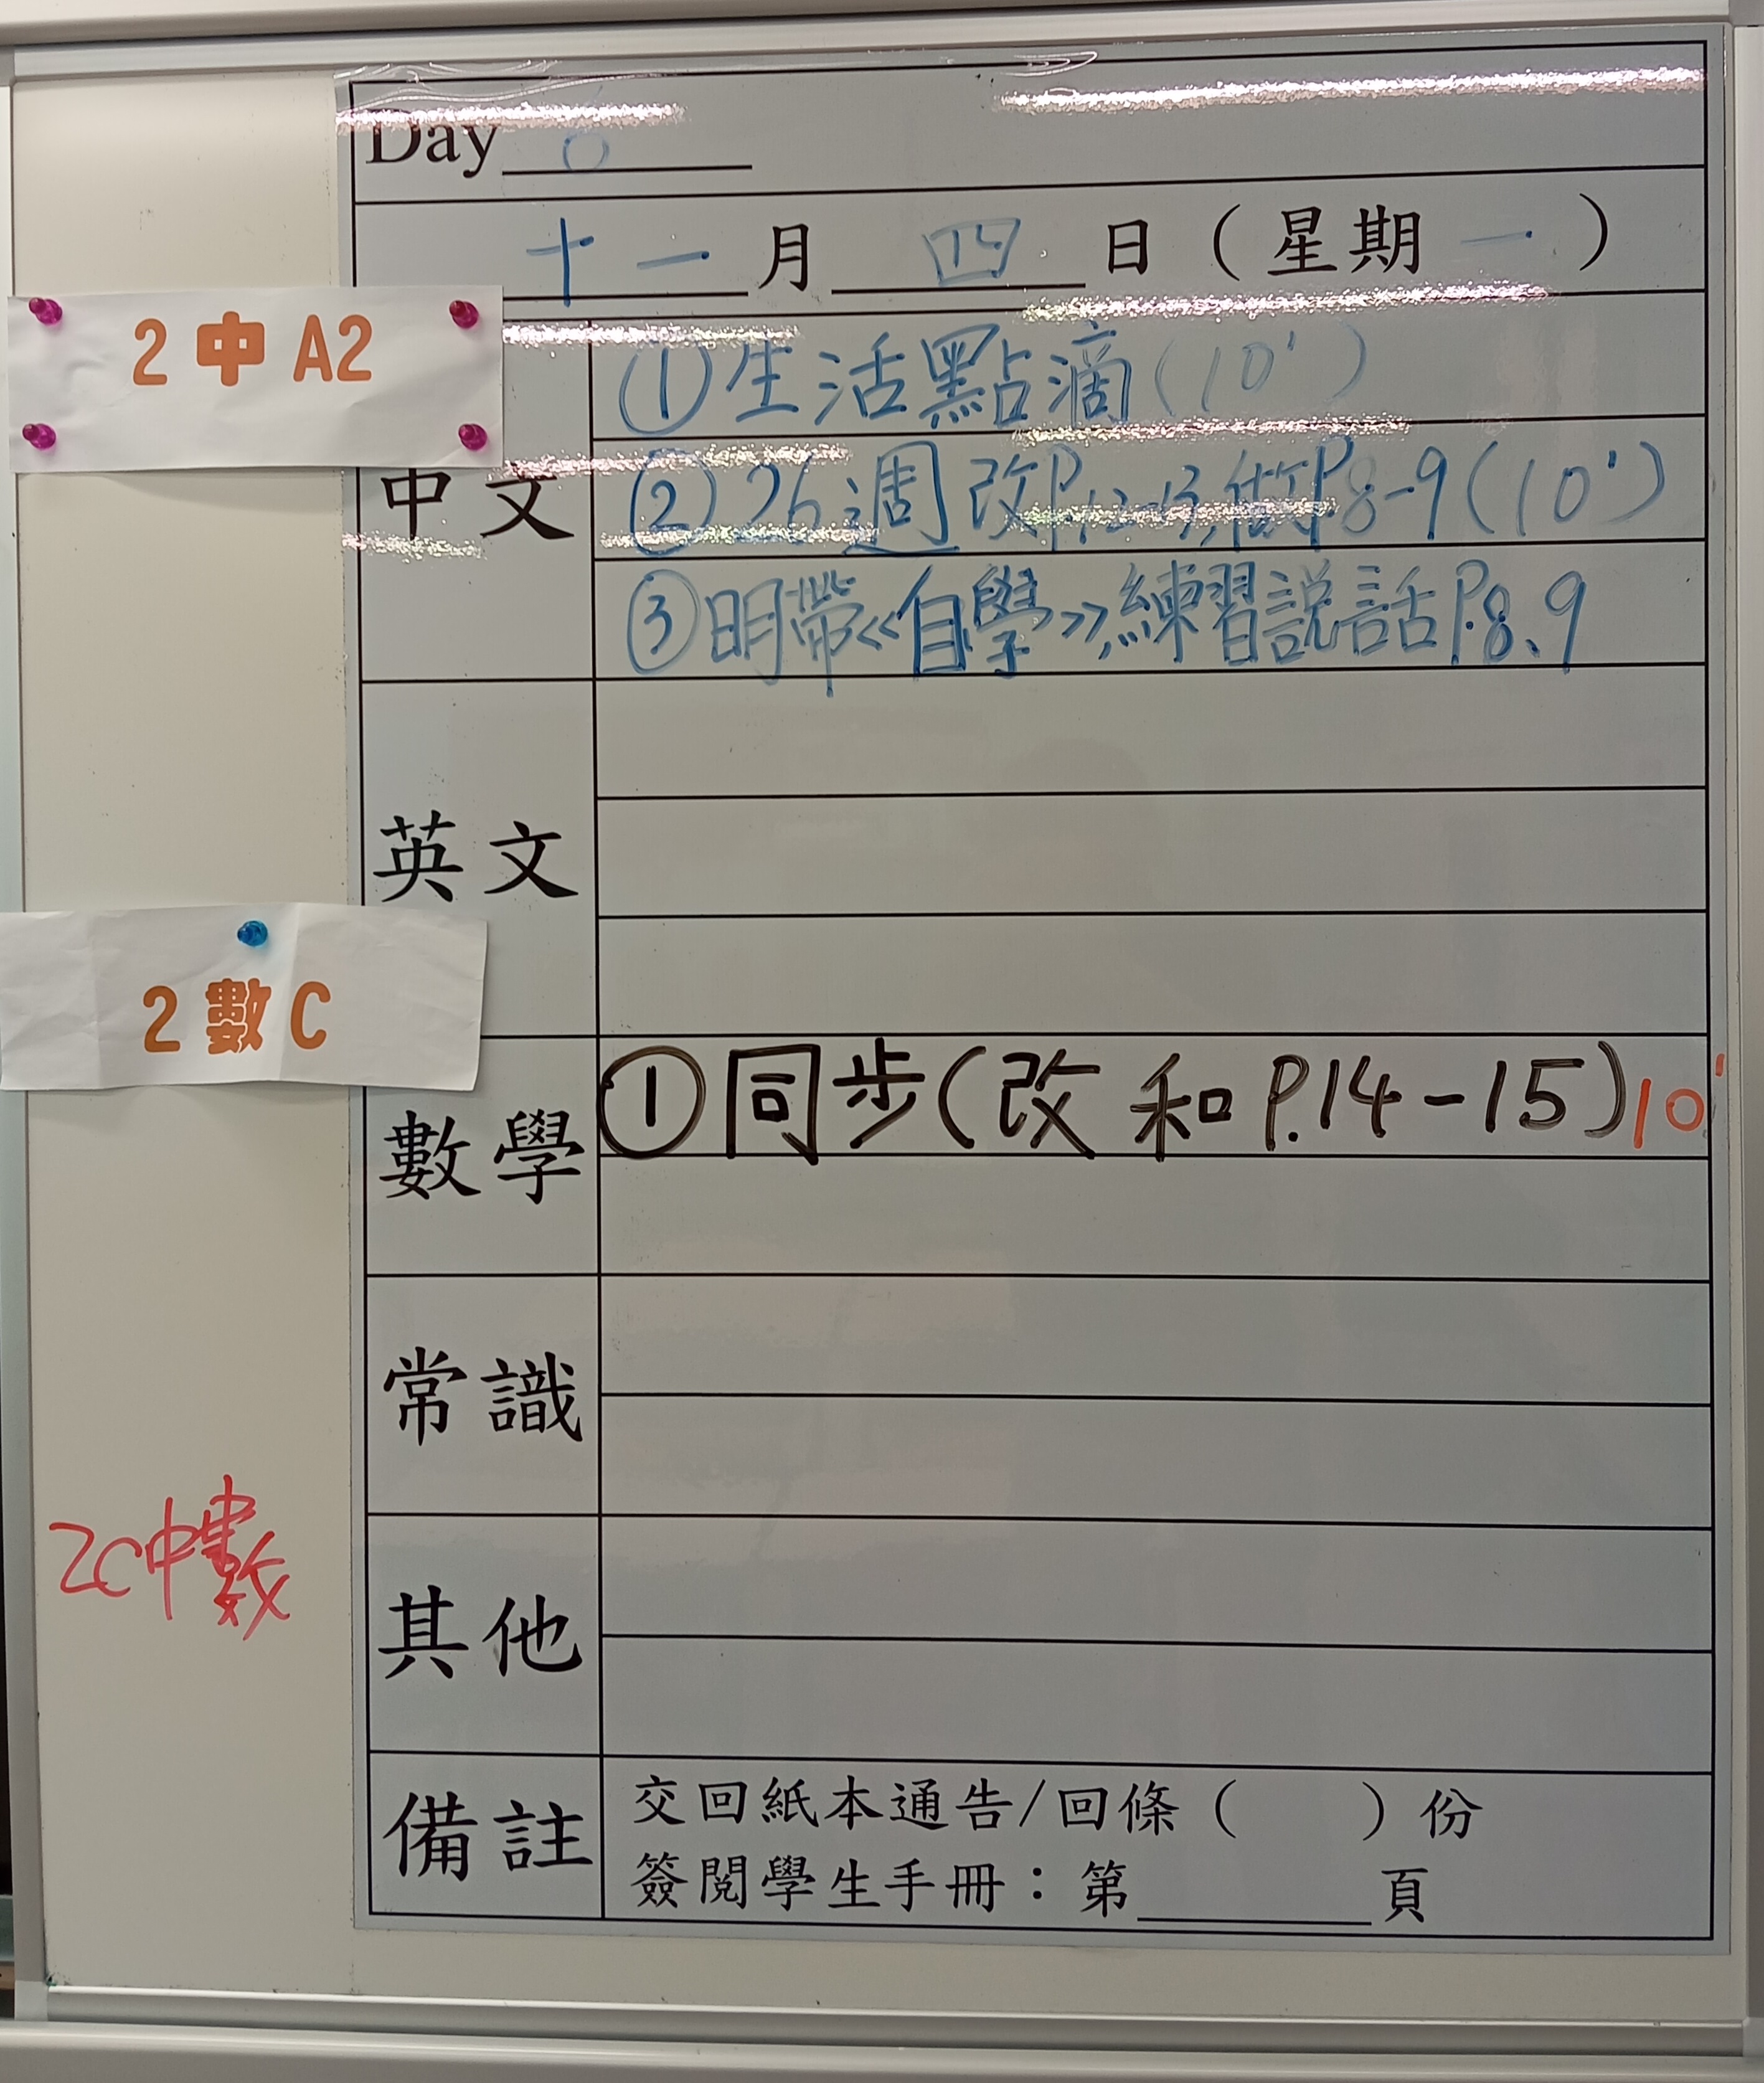 Day
十一月四日（星期一）
2 中 A2
中文
①生活點滴(10')
②26週改P.12-13,做P8-9(10')
③明帶《自學》,練習説話P.8、9
英文
2 數 C
數學
①同步(改和P.14-15)10'
常識
2C中數
其他
備註
交回紙本通告/回條（　　）份
簽閱學生手冊：第______頁